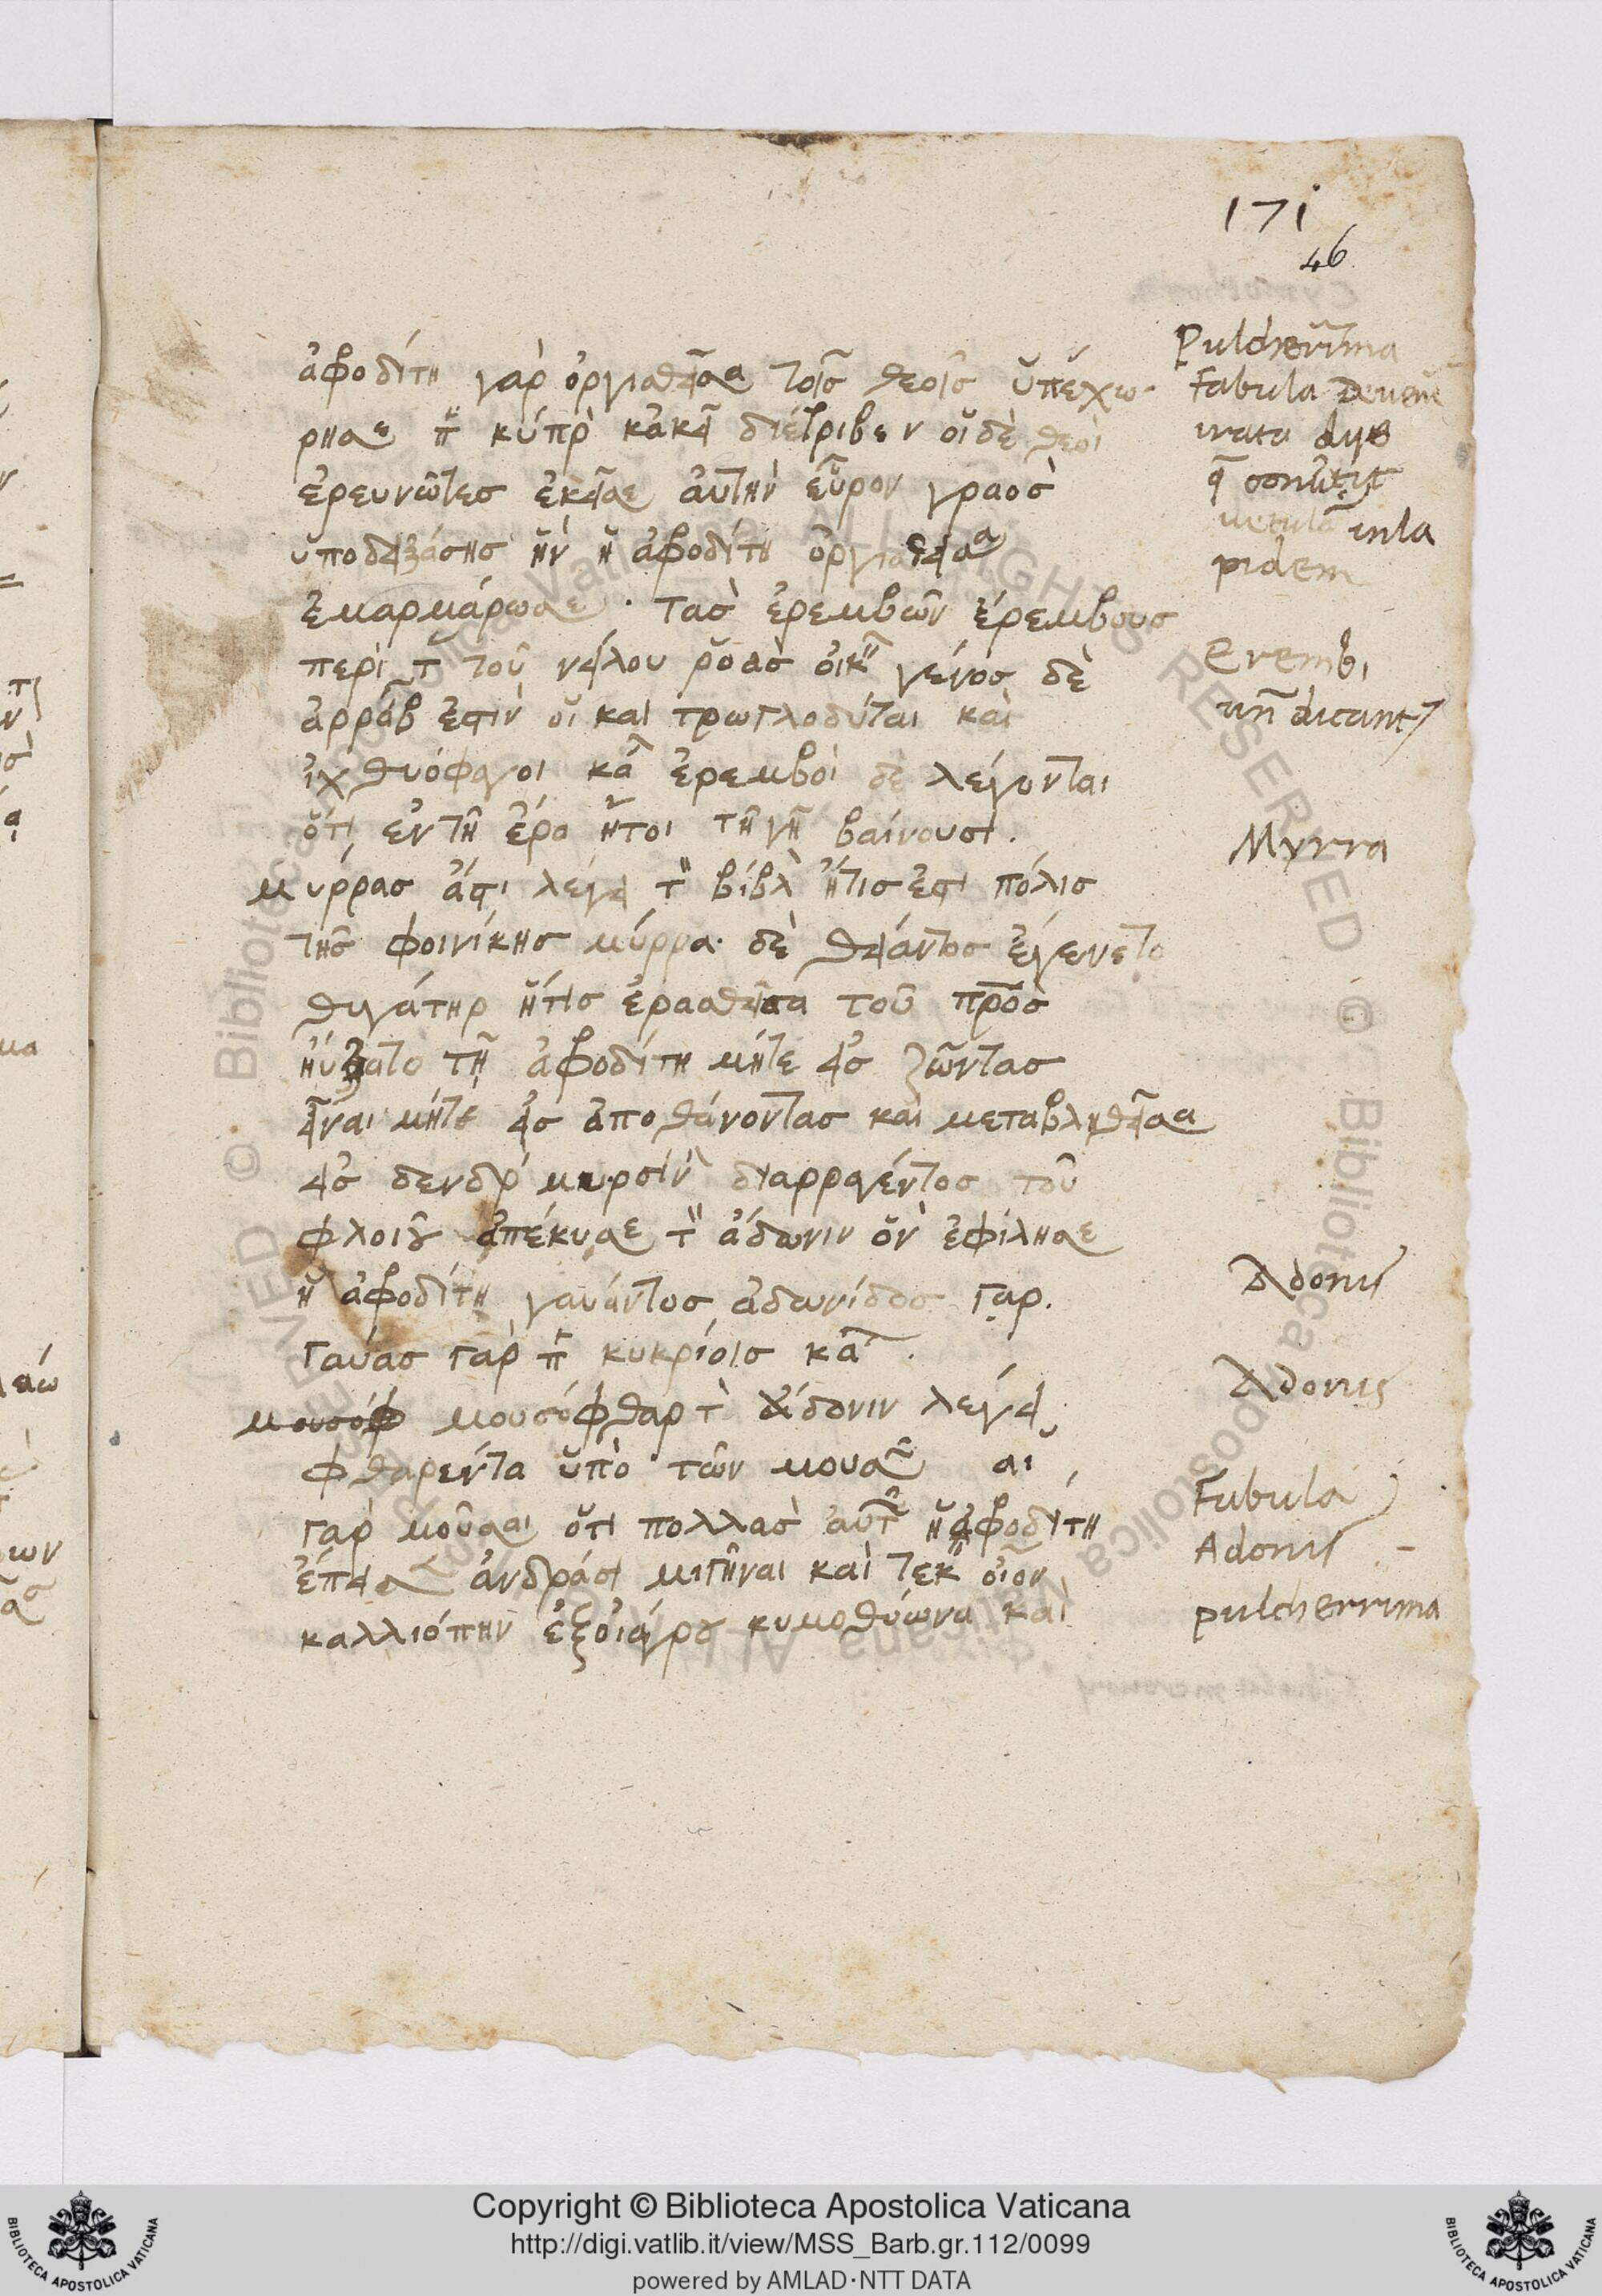 171
46
ἀφοδίτη γὰρ ὀργισθεῖσα τοῖς θεοῖς ὑπεχώ
ρησε π κύπρ κἀκεῖ διέτριβεν οἱ δὲ θεοὶ
ἐρευνῶντες ἐκεῖσε αὐτὴν εὗρον γραὸς
ὑποδειξάσης ἣν ἡ ἀφοδίτη ὀργισθεῖσα
ἐμαρμάρωσε · τὰς ἐρεμβῶν ἐρεμβους
περὶ τ τοῦ νείλου ῥοὰς οἰκ γένος δὲ
ἀρράβ ἐστιν οἳ και τρωγλοδύται καὶ
ἰχθυόφαγοι κα ἐρεμβοὶ δὲ λέγονται
ὅτι ἐν τῆ ἔρα ἤτοι τῆ γῆ βαίνουσι.
μύρρας ἄστι λέγει τ βίβλ ἥτις ἐστι πόλις
τῆς φοινίκης μύρρα δὲ θείαντος ἐγένετο
θυγάτηρ ἥτις ἐρασθεῖσα τοῦ προς
ηὔξατο τῆ ἀφοδίτη μήτε εἰς ζῶντας
εἶναι μήτε εἰς ἀποθάνοντας καὶ μεταβληθεῖσα
εἰς δενδρ μυρσίν διαρραγέντος τοῦ
φλοιοῦ ἀπέκυσε τ ἄδωνιν ὃν ἐφίλησε
ἡ ἀφοδίτη γαύαντος ἀδωνίδος γαρ.
γαύας γὰρ π κυκρίοις κα .
μουσόφ μουσόφθαρτ ἄδονιν λέγει
φθαρέντα ὑπὸ τῶν μουσ αἱ
γὰρ μοῦσαι ὅτι πολλὰς αὐτ ἡ ἀφοδίτη
ἔπεισ ἀνδράσι μιγῆναι καὶ τεκ οἷον
καλλιόπην ἐξ οἰάγρου κυμοθύωνα καὶ
Pulcherrima
Fabula Veneris
irata dys
vetulam in la
pidem
Erembi
dicantur
Myrra
Adonis
Adonis
Fabula
Adonis
pulcherrima
Copyright © Biblioteca Apostolica Vaticana
http://digi.vatlib.it/view/MSS_Barb.gr.112/0099
powered by AMLAD·NTT DATA
BIBLIOTECA APOSTOLICA VATICANA
BIBLIOTECA APOSTOLICA VATICANA